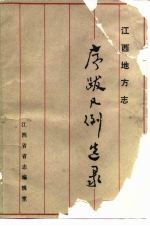 江西地方志
序跋凡例选录
江西省省志编辑室